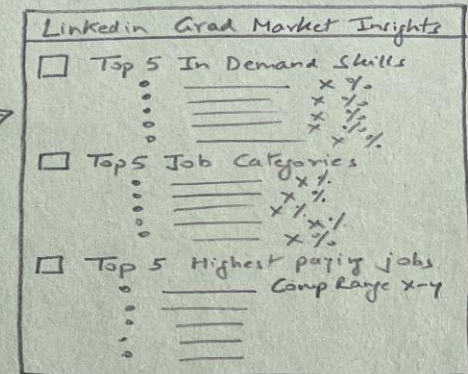 Linkedin Grad Market Insights
Top 5 In Demand Skills
x %
x %
x %
x %
x %
Top 5 Job Categories
x %
x %
x %
x %
x %
Top 5 Highest paying jobs
Comp Range x-y